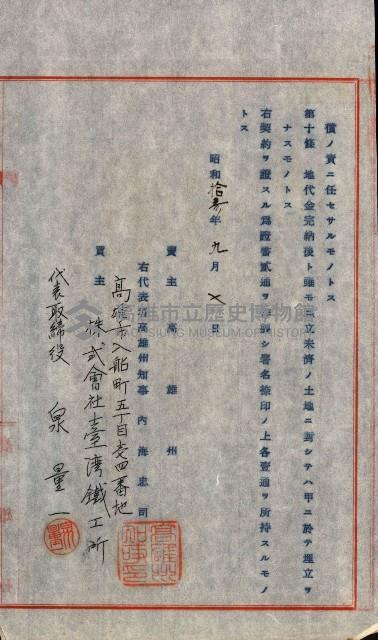 償ノ責ニ任セサルモノトス
第十條 地代金完納後ト雖モ埋立未濟ノ土地ニ對シテハ甲ニ於テ埋立ヲ
ナスモノトス
右契約ヲ證スル爲證書貳通ヲ作製シ署名捺印ノ上各壹通ヲ所持スルモノ
トス
昭和拾參年九月 日
賣主 高雄州
右代表者高雄州知事 內海忠司
高雄市入船町五丁目壱四番地
買主 株式會社臺湾鐵工所
代表取締役 泉量一
高雄市立歷史博物館
KAOHSIUNG MUSEUM OF HISTORY